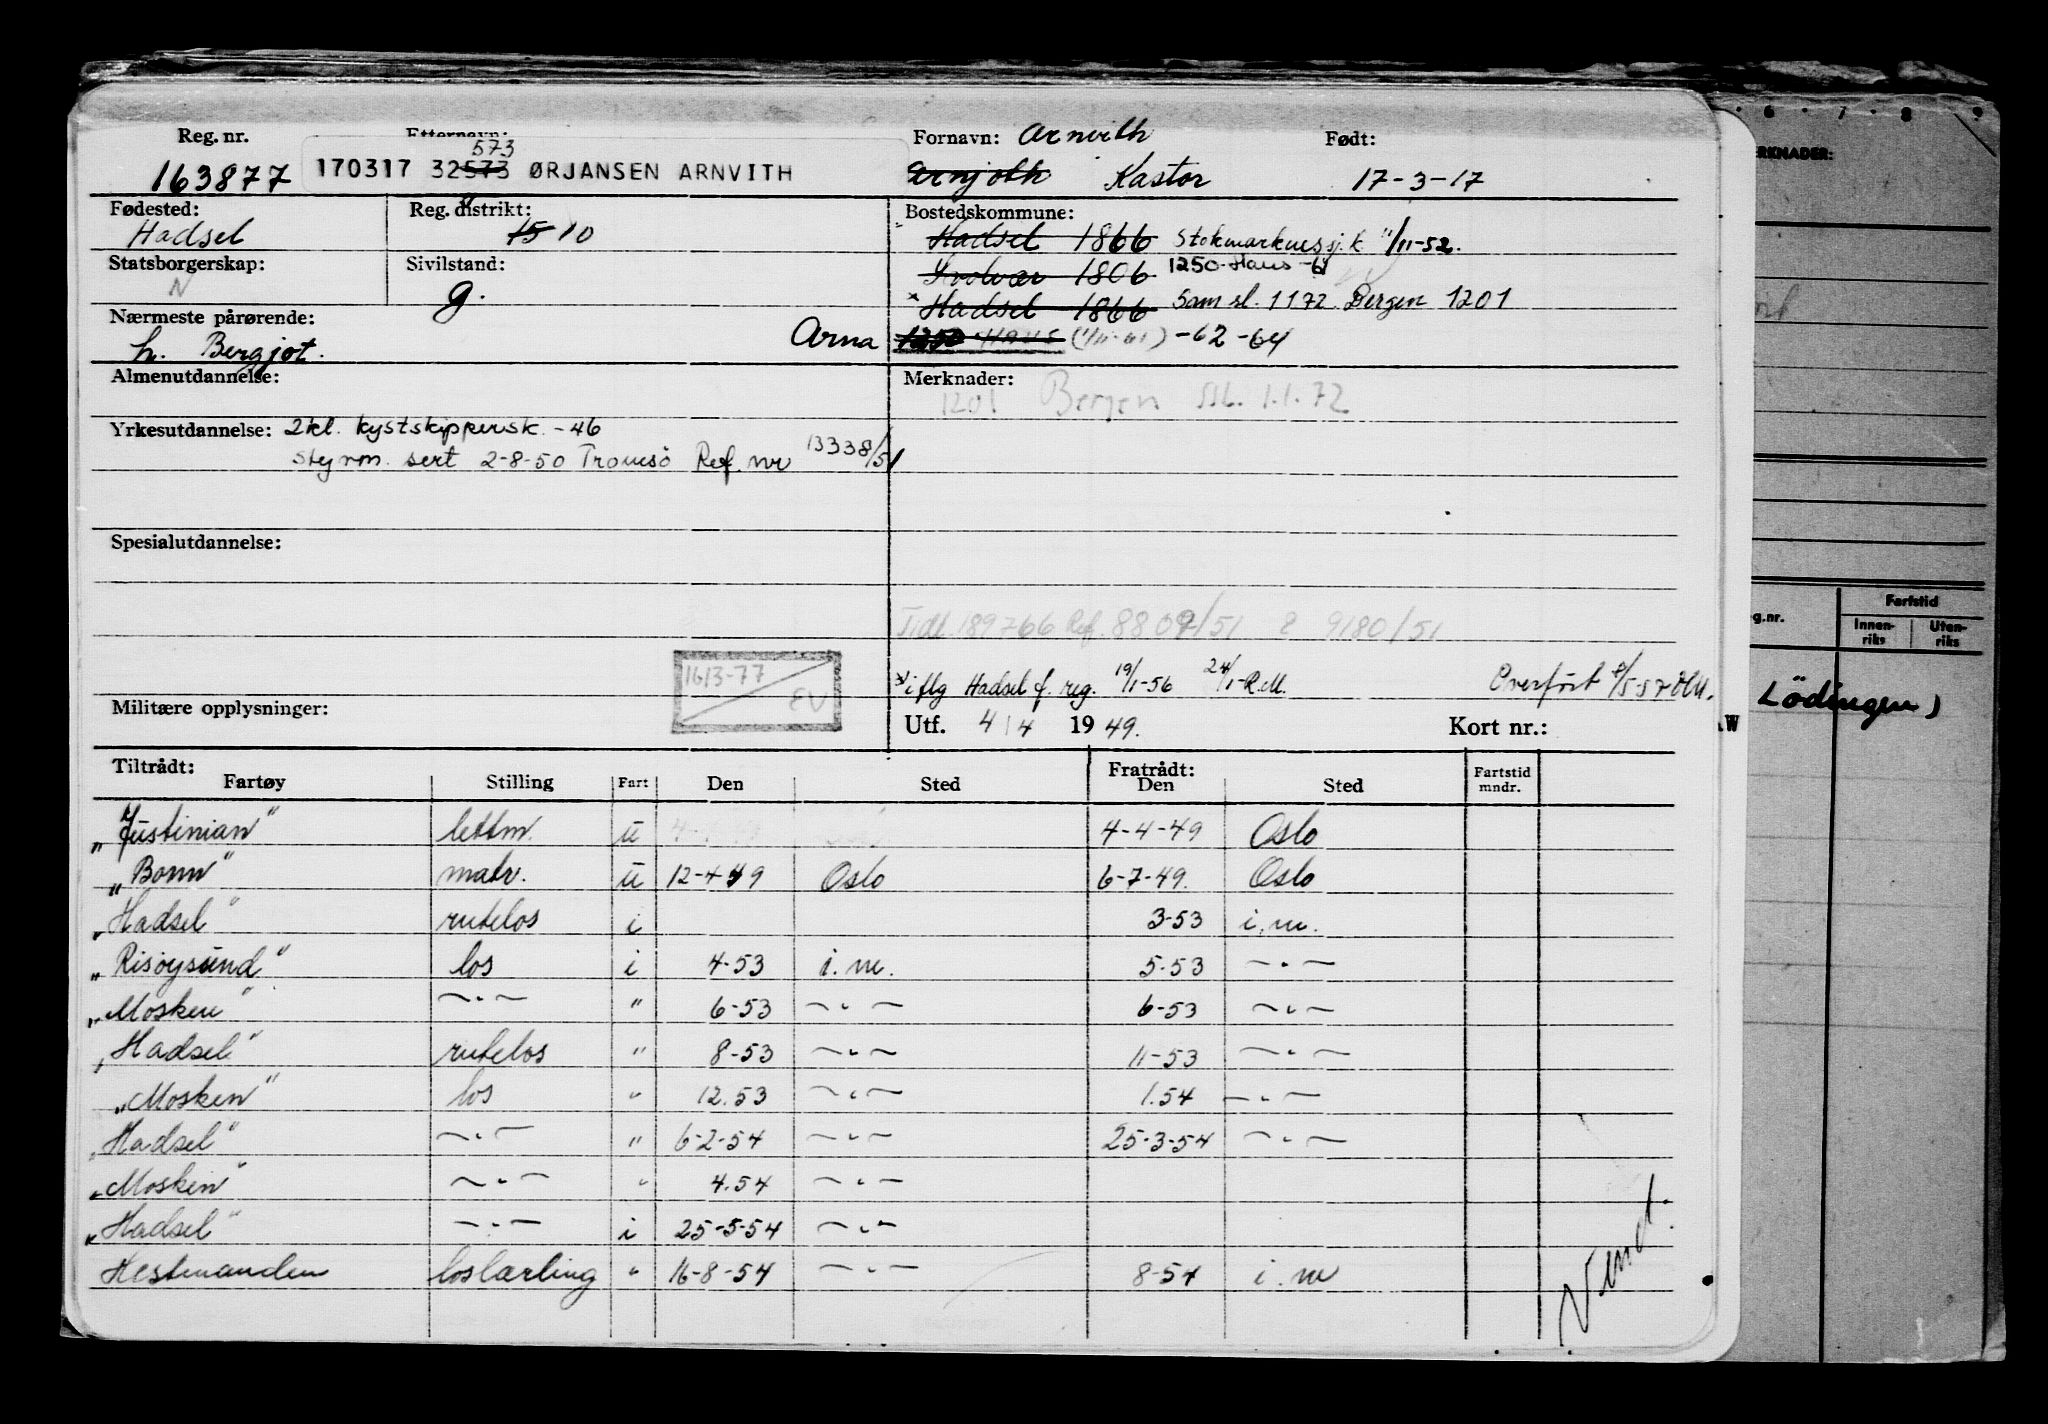 Reg. nr. Etternavn: Fornavn: Arnvith Født:
573
163877 170317 32573 ØRJANSEN ARNVITH Arnjoth Kastor 17-3-17
Fødested: Reg. distrikt: Bostedskommune:
Hadsel 15 10 Hadsel 1866 Stokmarknes sj.k. 11/11-52.
Statsborgerskap: Sivilstand: Svolvær 1806 1250-Haus-61
N g. Hadsel 1866 Sam sl. 1172 Bergen 1201
Nærmeste pårørende: Arna 1250 HAUS (1/11-61) -62 -64
h. Bergjot.
Almenutdannelse: Merknader:
1201 Bergen 1.1.72
Yrkesutdannelse: 2kl. kystskippersk. -46
styrm. sert 2-8-50 Tromsö Ref. nr 13338/51
Spesialutdannelse:
Tidl. 189766 Ref. 8809/51 & 9180/51
1613-77
EV
iflg Hadsel f. reg. 19/1-56 24/1-R.M. Overført 8/5-57
Militære opplysninger: Utf. 4/4 1949. Kort nr.:
Tiltrådt: Fratrådt:
Fartøy Stilling Fart Den Sted Den Sted Fartstid mndr.
„Justinian" lettm. u 4-4-49 Oslo
„Bonn" matr. u 12-4-49 Oslo 6-7-49. Oslo
„Hadsel" rutelos i 3-53 i.m.
„Risøysund" los i 4-53 i.m. 5-53 —„—
„Mosken" —„— " 6-53 —„— 6-53 —„—
„Hadsel" rutelos " 8-53 —„— 11-53 —„—
„Mosken" los " 12.53 —„— 1.54 —„—
„Hadsel" —„— " 6-2-54 —„— 25-3-54 —„—
„Mosken" —„— " 4.54 —„—
„Hadsel" —„— i 25-5-54 —„—
Hestmanden loslærling " 16-8-54 —„— 8-54 i.m
Vend.
6 7 8 9
ERKNADER:
g.nr. Fartstid
Innen-riks Uten-riks
Lödingen)
W